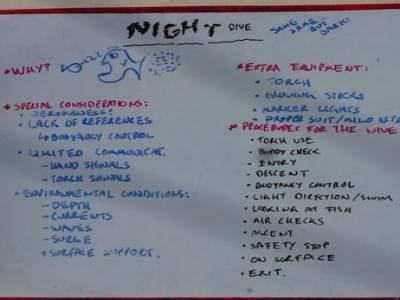 NIGHT DIVE
SAME SAME BUT DARK!
* WHY?
zzz
* SPECIAL CONSIDERATIONS:
- NERVOUSNESS?
- LACK OF REFERENCES
↳ BUOYANCY CONTROL
- LIMITED COMMUNICAT.
- HAND SIGNALS
- TORCH SIGNALS
- ENVIRONMENTAL CONDITIONS:
- DEPTH
- CURRENTS
- WAVES
- SURGE
* SURFACE SUPPORT.
* EXTRA EQUIPMENT:
- TORCH
- GLOWING STICKS
- MARKER LIGHTS
- PROPER SUIT/
* PROCEDURES FOR THE DIVE
• TORCH USE
• BUDDY CHECK
• ENTRY
• DESCENT
• BUOYANCY CONTROL
• LIGHT DIRECTION/SWIM
• LOOKING AT FISH
• AIR CHECKS
• ASCENT
• SAFETY STOP
• ON SURFACE
• EXIT.